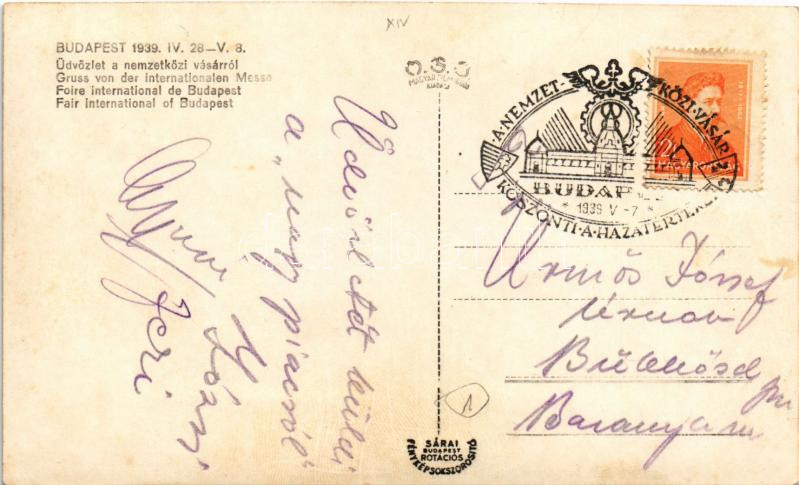 XIV
BUDAPEST 1939. IV. 28—V. 8.
Üdvözlet a nemzetközi vásárról
Gruss von der internationalen Messe
Foire international de Budapest
Fair International of Budapest
O.G.J
MAGYAR FILM IRODA
KIADÁSA
A·NEMZET-KÖZI·VÁSÁR
BUDAPE
* 1939 V -7 *
KÖSZÖNTI·A·HAZATÉRTEKE
MAGYARORSZÁG
Üdvözletét küldi
a „nagy piacról"
Kózzi
Jeri
Ürmös József
úrnak
Bükkösd
pu
Baranya m
1
SÁRAI
BUDAPEST
ROTÁCIÓS
FÉNYKÉPSOKSZOROSITÓ